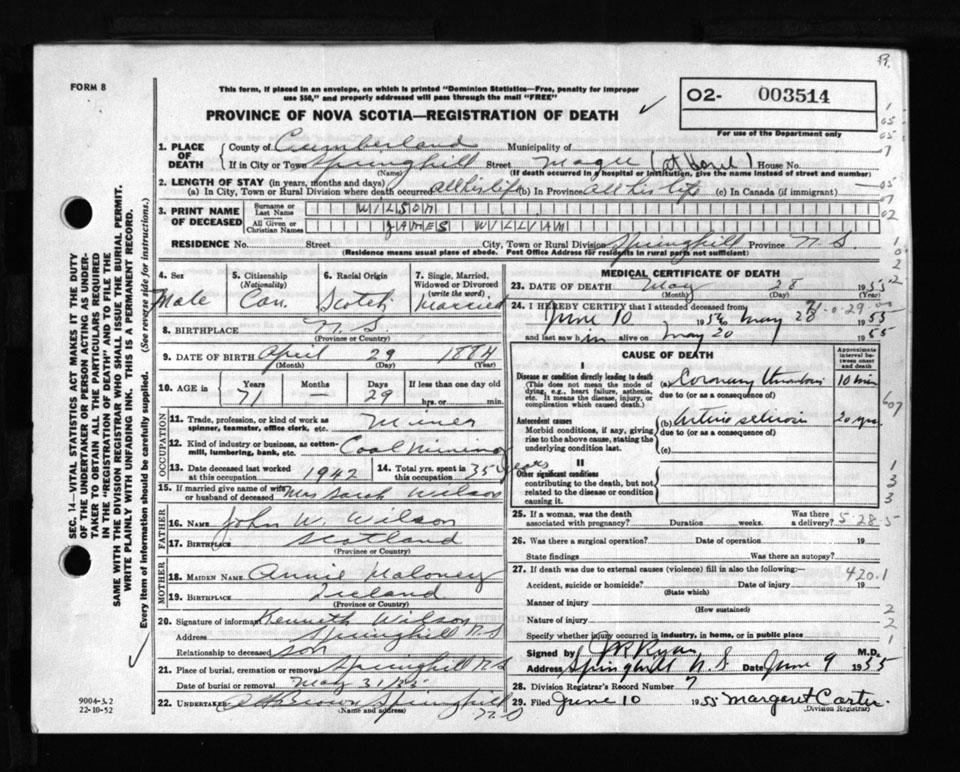 FORM 8
This form, if placed in an envelope, on which is printed "Dominion Statistics—Free, penalty for improper
use $50," and properly addressed will pass through the mail "FREE"
PROVINCE OF NOVA SCOTIA—REGISTRATION OF DEATH
O2- 003514
For use of the Department only
1. PLACE OF DEATH
County of Cumberland Municipality of
If in City or Town Springhill Street (at House No.
(Name) (If death occurred in a hospital or institution, give the name instead of street and number)
2. LENGTH OF STAY (in years, months and days)
(a) In City, Town or Rural Division where death occurred all his life (b) In Province all his life (c) In Canada (if immigrant)
3. PRINT NAME OF DECEASED
Surname or Last Name WILSON
All Given or Christian Names JAMES WILLIAM
RESIDENCE No. Street City, Town or Rural Division Springhill Province N.S.
(Residence means usual place of abode. Post Office Address for residents in rural parts not sufficient)
4. Sex
Male
5. Citizenship
(Nationality)
Can.
6. Racial Origin
Scotch
7. Single, Married, Widowed or Divorced
(write the word)
Married
8. BIRTHPLACE N.S.
(Province or Country)
9. DATE OF BIRTH April 29 1884
(Month) (Day) (Year)
10. AGE in Years Months Days If less than one day old
71 — 29 hrs. or min.
OCCUPATION
11. Trade, profession, or kind of work as
spinner, teamster, office clerk, etc. Miner
12. Kind of industry or business, as cotton-
mill, lumbering, bank, etc. Coal Mining
13. Date deceased last worked
at this occupation 1942
14. Total yrs. spent in
this occupation 35 years
15. If married give name of wife
or husband of deceased Mrs Sarah Wilson
FATHER
16. NAME John W. Wilson
17. BIRTHPLACE Scotland
(Province or Country)
MOTHER
18. MAIDEN NAME Annie Maloney
19. BIRTHPLACE Ireland
(Province or Country)
20. Signature of informant Kenneth Wilson
Address Springhill N.S
Relationship to deceased son
21. Place of burial, cremation or removal Springhill N.S
Date of burial or removal May 31/55
22. UNDERTAKER Brown Springhill
(Name and address) N.S
MEDICAL CERTIFICATE OF DEATH
23. DATE OF DEATH May 28 1955
(Month) (Day) (Year)
24. I HEREBY CERTIFY that I attended deceased from
June 10 195 to May 28 1955
and last saw him alive on May 20 1955
CAUSE OF DEATH
Approximate interval between onset and death
I
Disease or condition directly leading to death
(This does not mean the mode of dying, e.g., heart failure, asthenia, etc. It means the disease, injury, or complication which caused death.)
(a) Coronary Thrombosis 10 min
due to (or as a consequence of)
Antecedent causes
Morbid conditions, if any, giving rise to the above cause, stating the underlying condition last.
(b) 20 yrs
due to (or as a consequence of)
(c)
II
Other significant conditions
contributing to the death, but not related to the disease or condition causing it.
25. If a woman, was the death
associated with pregnancy? Duration weeks. Was there a delivery? 5-28-5
26. Was there a surgical operation? Date of operation 19
State findings Was there an autopsy?
27. If death was due to external causes (violence) fill in also the following: 420.1
Accident, suicide or homicide? Date of injury 19
(State which)
Manner of injury
(How sustained)
Nature of injury
Specify whether injury occurred in industry, in home, or in public place
Signed by Ryan M.D.
Address Springhill N.S Date June 9 1955
28. Division Registrar's Record Number 7
29. Filed June 10 1955 Margaret Carter
(Division Registrar)
SEC. 14—VITAL STATISTICS ACT MAKES IT THE DUTY
OF THE UNDERTAKER OR PERSON ACTING AS UNDER-
TAKER TO OBTAIN ALL THE PARTICULARS REQUIRED
IN THE "REGISTRATION OF DEATH" AND TO FILE THE
SAME WITH THE DIVISION REGISTRAR WHO SHALL ISSUE THE BURIAL PERMIT.
WRITE PLAINLY WITH UNFADING INK. THIS IS A PERMANENT RECORD.
Every item of information should be carefully supplied. (See reverse side for instructions.)
9004-3.2
22-10-52